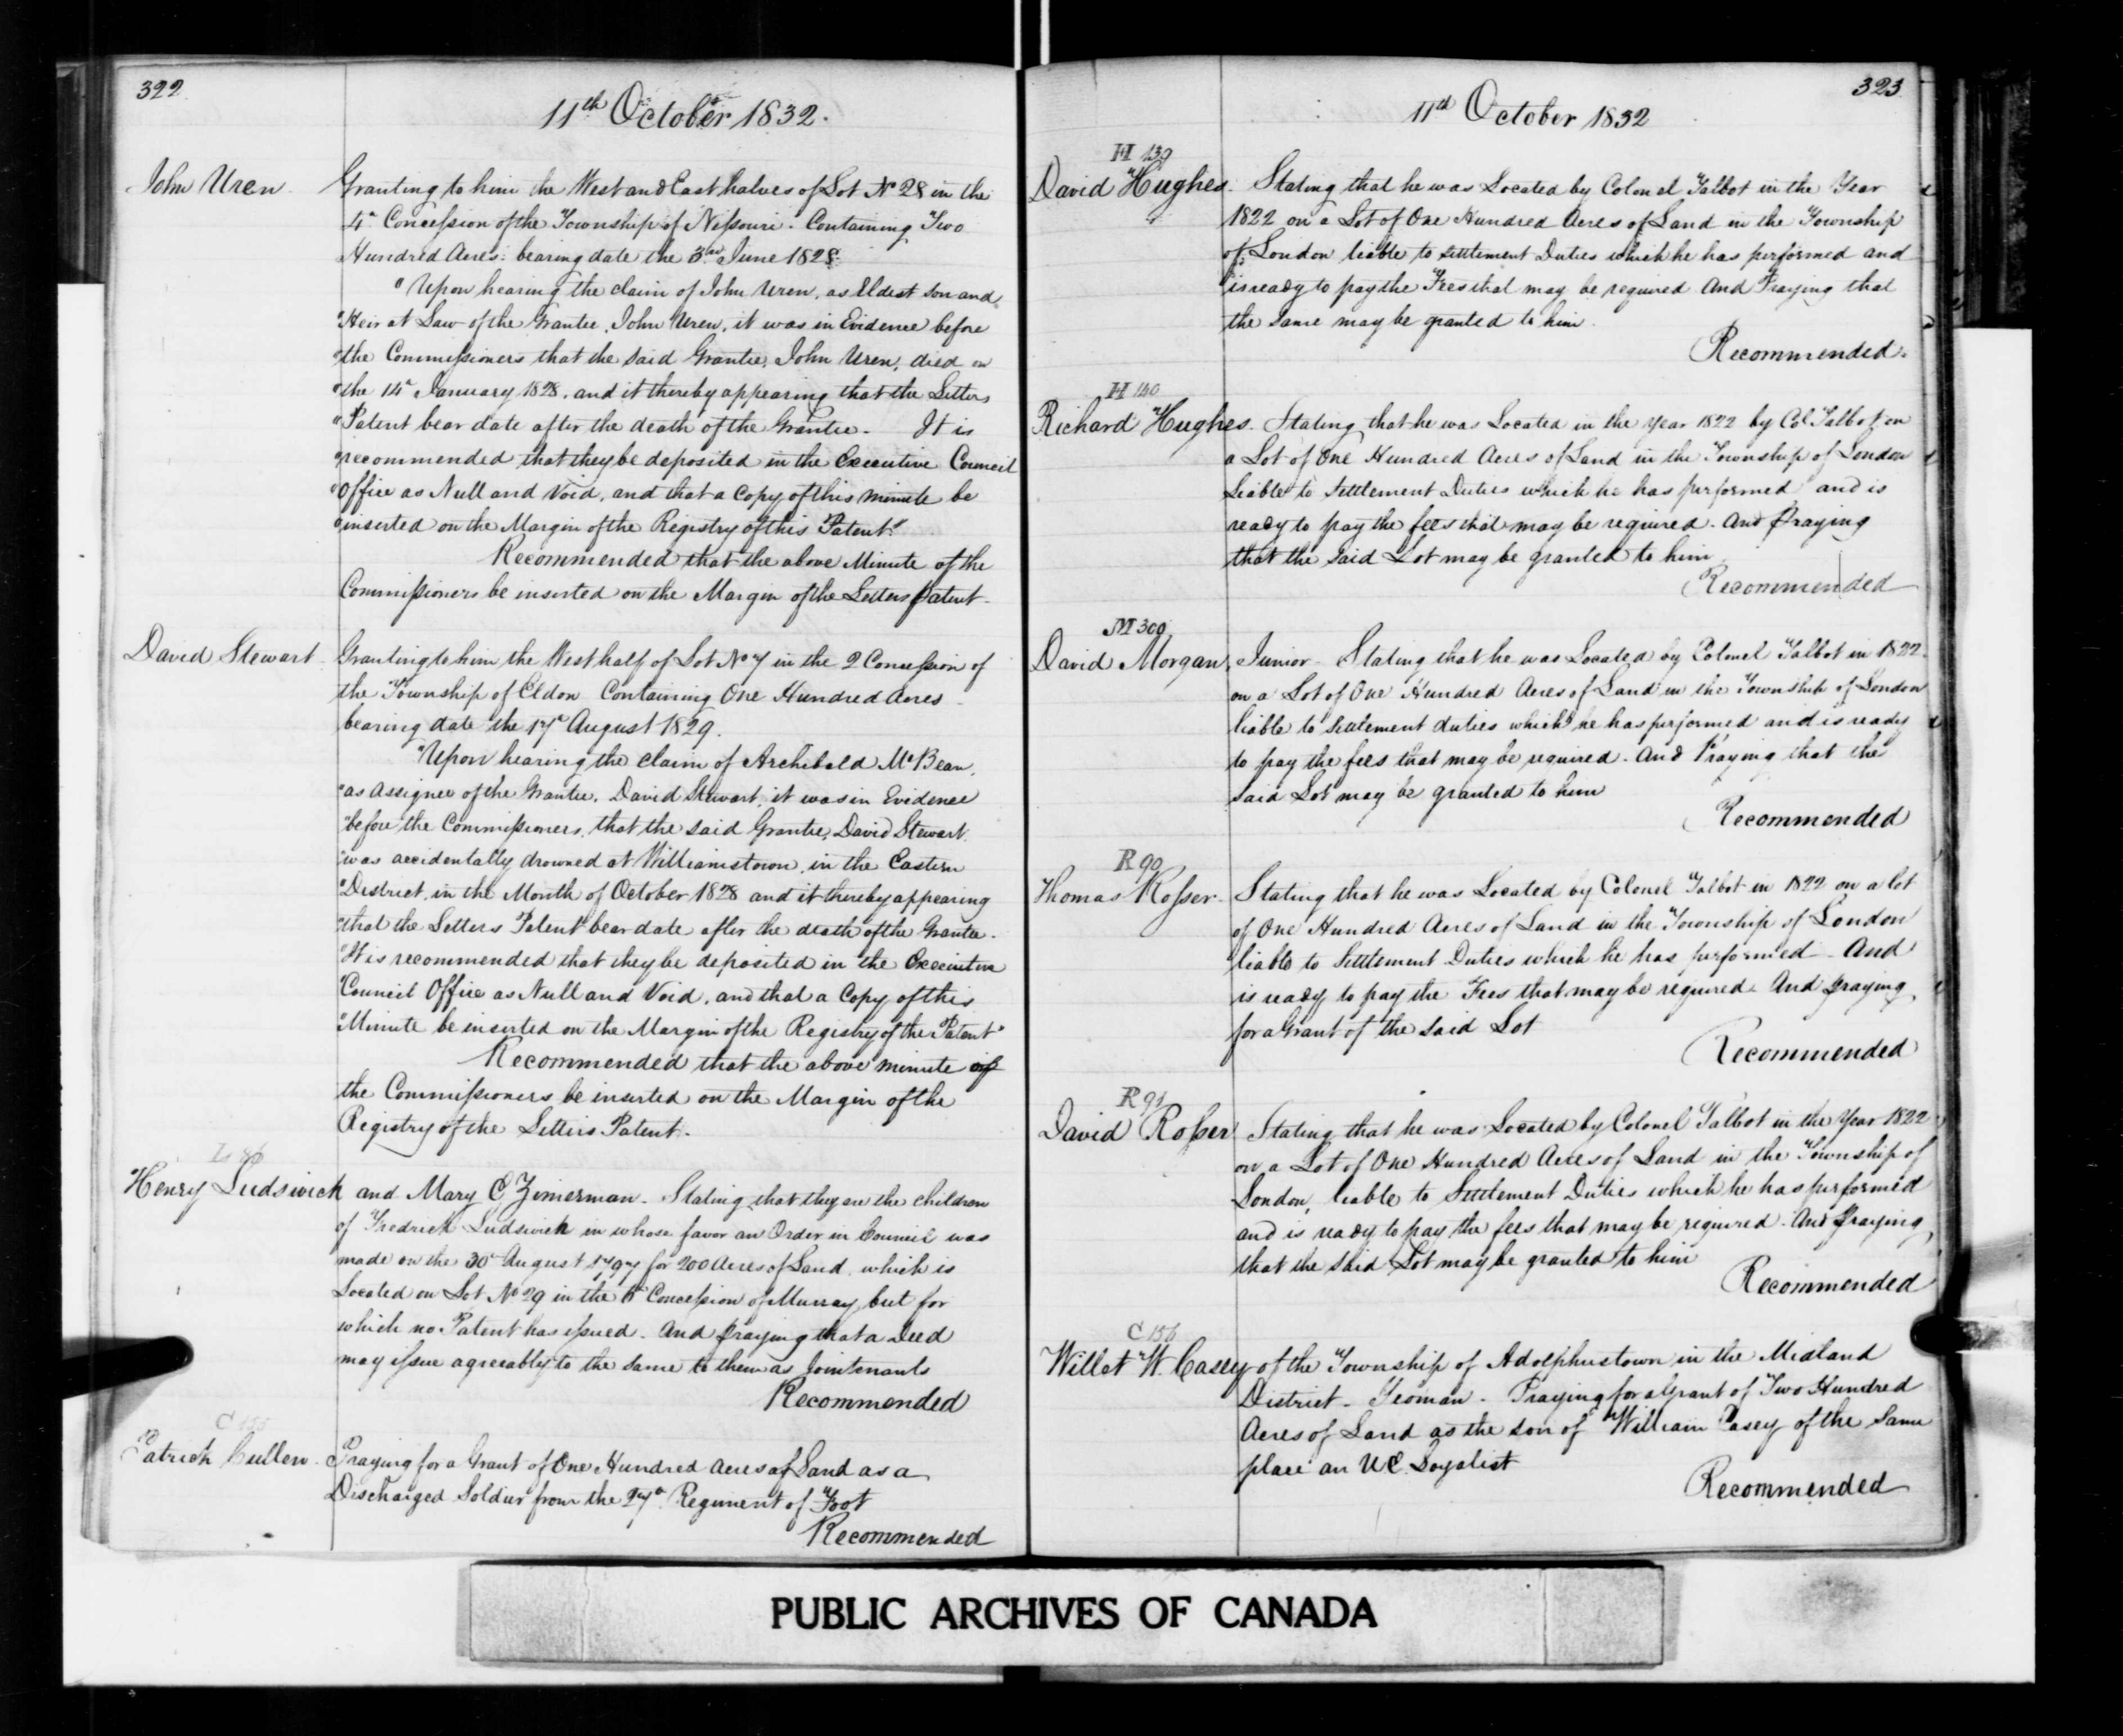 322
11th October 1832.
John Uren. Granting to him the West and East halves of Lot No 28 in the
4th Concession of the Township of Nissouri. Containing Two
Hundred Acres: bearing date the 3rd June 1828.
"Upon hearing the claim of John Uren, as Eldest son and
"Heir at Law of the Grantee, John Uren, it was in Evidence before
"the Commissioners that the said Grantee, John Uren, died on
"the 14th January 1828, and it thereby appearing that the Letters
"Patent bear date after the death of the Grantee. It is
"recommended that they be deposited in the Executive Council
"Office as Null and Void, and that a Copy of this minute be
"inserted on the Margin of the Registry of this Patent."
Recommended that the above Minute of the
Commissioners be inserted on the Margin of the Letters patent.
David Stewart. Granting to him the West half of Lot No 7 in the 2 Concession of
the Township of Eldon Containing One Hundred Acres
bearing date the 17th August 1829.
"Upon hearing the claim of Archibald McBean,
"as Assignee of the Grantee, David Stewart, it was in Evidence
"before the Commissioners, that the said Grantee, David Stewart
"was accidentally drowned at Williamstown, in the Eastern
"District, in the Month of October 1828 and it thereby appearing
"that the Letters Patent bear date after the death of the Grantee.
"It is recommended that they be deposited in the Executive
"Council Office as Null and Void, and that a Copy of this
"Minute be inserted on the Margin of the Registry of the Patent"
Recommended that the above minute of
the Commissioners be inserted on the Margin of the
Registry of the Letters Patent.
Henry Ludswick and Mary C Zimerman. Stating that they are the children
of Fredrick Ludswick in whose favor an Order in Council was
made on the 30th August 1797 for 200 Acres of Land which is
Located on Lot No 29 in the Concession of Murray, but for
which no Patent has issued. And praying that a Deed
may issue agreeably to the same to them as Jointenants
Recommended
Patrick Cullen. Praying for a Grant of One Hundred Acres of Land as a
Discharged Soldier from the 27th Regiment of Foot
Recommended
323
11th October 1832
H 139
David Hughes. Stating that he was Located by Colonel Talbot in the Year
1822 on a Lot of One Hundred Acres of Land in the Township
of London liable to settlement Duties which he has performed and
is ready to pay the Fees that may be required And Praying that
the same may be granted to him.
Recommended.
H 140
Richard Hughes. Stating that he was Located in the year 1822 by Col Talbot on
a Lot of One Hundred Acres of Land in the Township of London
Liable to Settlement Duties which he has performed and is
ready to pay the fees that may be required. And praying
that the said Lot may be granted to him
Recommended
M 300
David Morgan, Junior. Stating that he was Located by Colonel Talbot in 1822
on a Lot of One Hundred Acres of Land in the Township of London
liable to Settlement duties which he has performed and is ready
to pay the fees that may be required. And Praying that the
said Lot may be granted to him
Recommended
R 90
Thomas Rosser. Stating that he was Located by Colonel Talbot in 1822 on a lot
of One Hundred Acres of Land in the Township of London
liable to Settlement Duties which he has performed. And
is ready to pay the Fees that may be required. And praying
for a Grant of the said Lot
Recommended
R 91
David Rosser Stating that he was Located by Colonel Talbot in the Year 1822
on a Lot of One Hundred Acres of Land in the Township of
London, liable to Settlement Duties which he has performed
and is ready to pay the fees that may be required. And praying
that the said Lot may be granted to him
Recommended
C 156
Willet W. Casey of the Township of Adolphustown in the Midland
District. Yeoman. Praying for a Grant of Two Hundred
Acres of Land as the son of William Casey of the Same
place an UE. Loyalist
Recommended
PUBLIC ARCHIVES OF CANADA